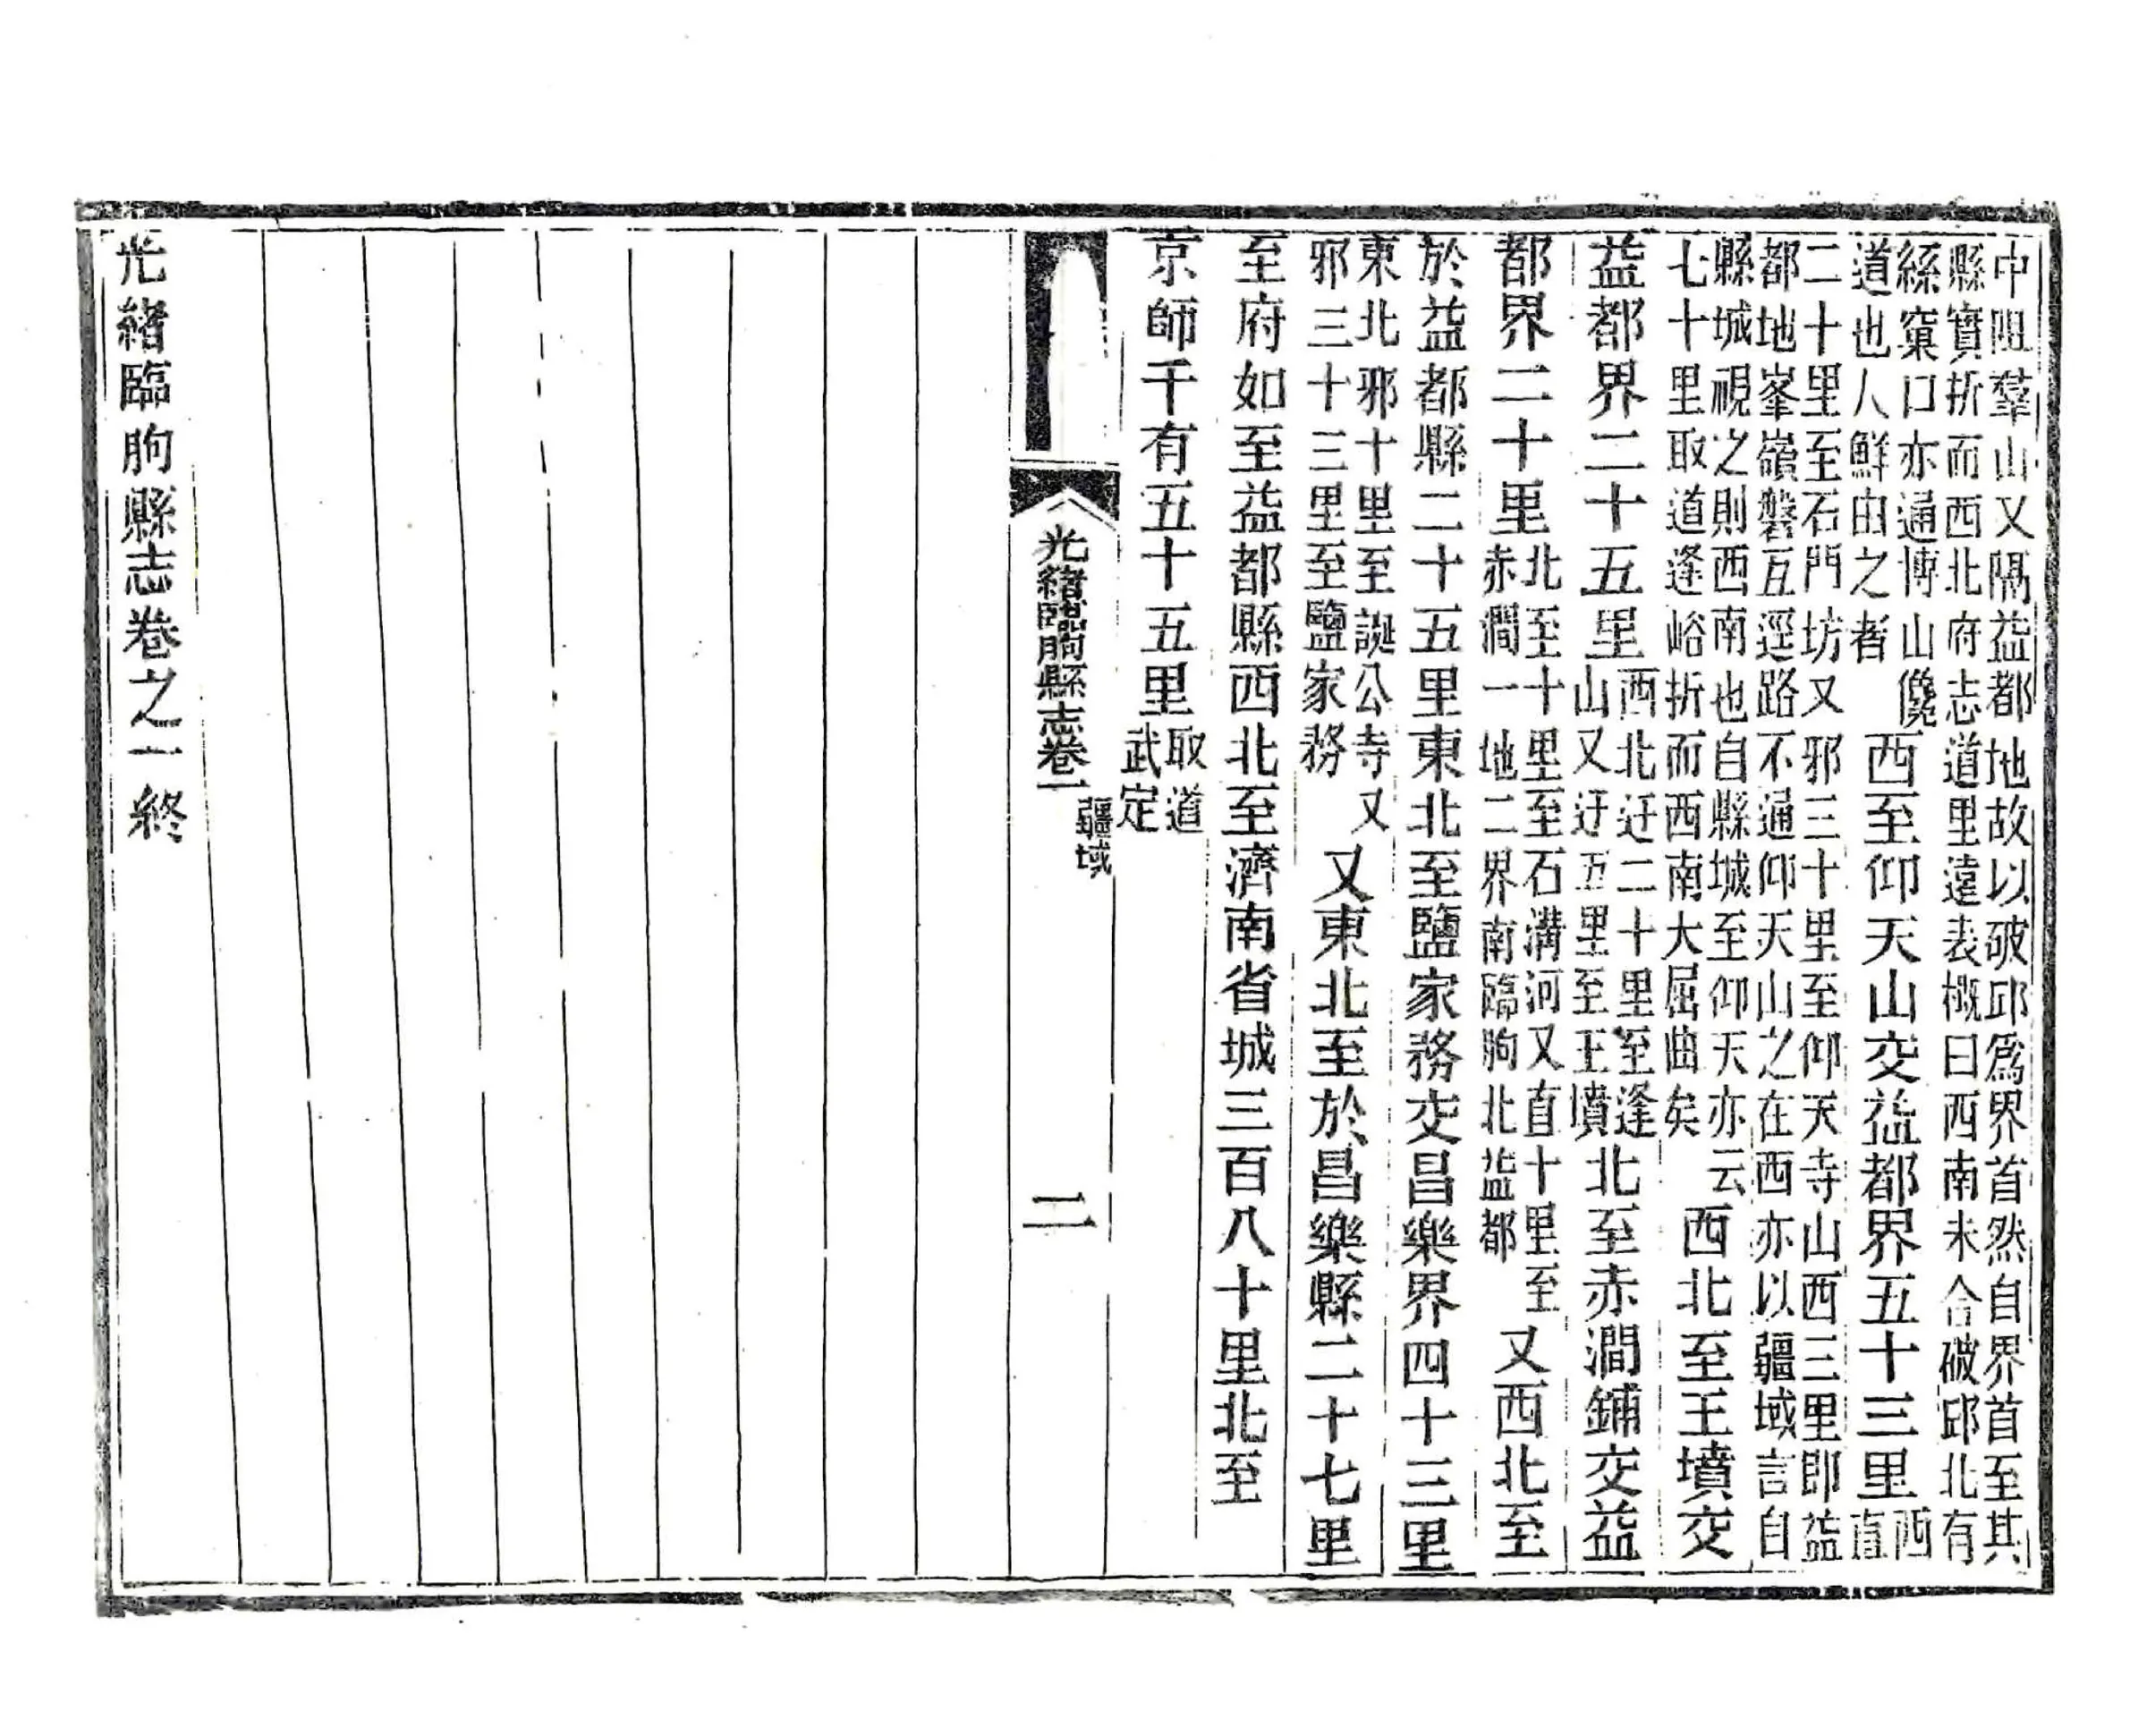 中阻羣山又隔益都地故以破邱爲界首然自界首至其
縣實折而西北府志道里遠表概曰西南未合破邱北有
絲窠口亦通博山儳
道也人鮮由之者
西至仰天山交益都界五十三里
西
直
二十里至石門坊又邪三十里至仰天寺山西三里即益
都地峯嶺磐互逕路不通仰天山之在西亦以疆域言自
縣城視之則西南也自縣城至仰天亦云
七十里取道逄峪折而西南大屈曲矣
西北至王墳交
益都界二十五里
西北迂二十里至逄
山又迂五里至王墳
北至赤澗鋪交益
都界二十里
北至十里至石溝河又直十里至
赤澗一地二界南臨朐北益都
又西北至
於益都縣二十五里東北至鹽家務交昌樂界四十三里
東北邪十里至誕公寺又
邪三十三里至鹽家務
又東北至於昌樂縣二十七里
至府如至益都縣西北至濟南省城三百八十里北至
京師千有五十五里
取道
武定
光緒臨朐縣志卷一
疆域
二
光緒臨朐縣志卷之一終